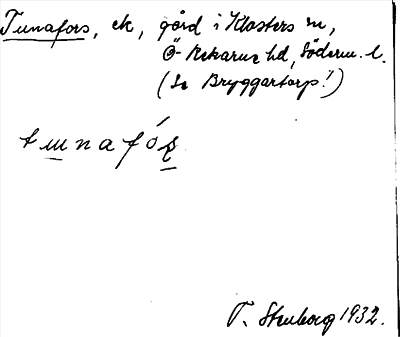 Tunafors, ek, gård i Klosters sn,
Ö-Rekarne hd, Söderm. l.
(Se Bryggartorp!)
tɯnafóʂ
T. Stenborg 1932.